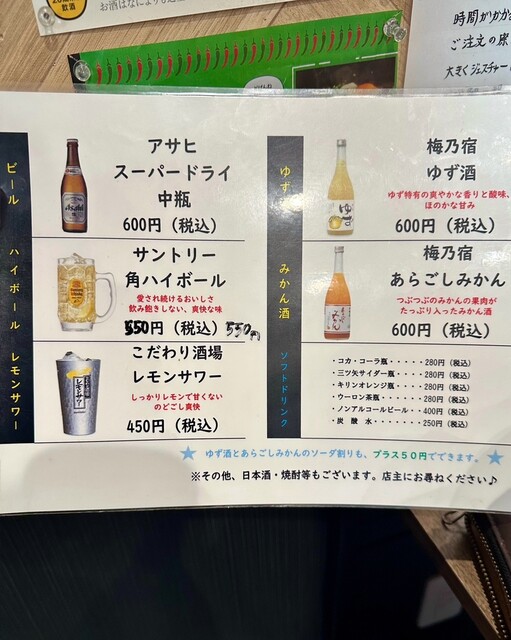 飲酒
お酒はなによりも適
時間がかか
ご注文の際
大きくジェスチャー
ビール
アサヒ
スーパードライ
中瓶
600円（税込）
ハイボール
サントリー
角ハイボール
愛され続けるおいしさ
飲み飽きしない、爽快な味
550円（税込）550円
レモンサワー
こだわり酒場
レモンサワー
しっかりレモンで甘くない
のどごし爽快
450円（税込）
ゆず
梅乃宿
ゆず酒
ゆず特有の爽やかな香りと酸味、
ほのかな甘み
600円（税込）
みかん酒
梅乃宿
あらごしみかん
つぶつぶのみかんの果肉が
たっぷり入ったみかん酒
600円（税込）
ソフトドリンク
・コカ・コーラ瓶・・・・・280円（税込）
・三ツ矢サイダー瓶・・・・280円（税込）
・キリンオレンジ瓶・・・・280円（税込）
・ウーロン茶瓶・・・・・・280円（税込）
・ノンアルコールビール・・400円（税込）
・炭 酸 水・・・・・・・250円（税込）
★ ゆず酒とあらごしみかんのソーダ割りも、プラス５０円でできます。★
※その他、日本酒・焼酎等もございます。店主にお尋ねください♪
Asahi
ゆず
レモンサワー